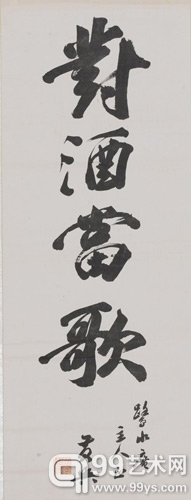 對酒當歌
主人
99艺术网
www.99ys.com